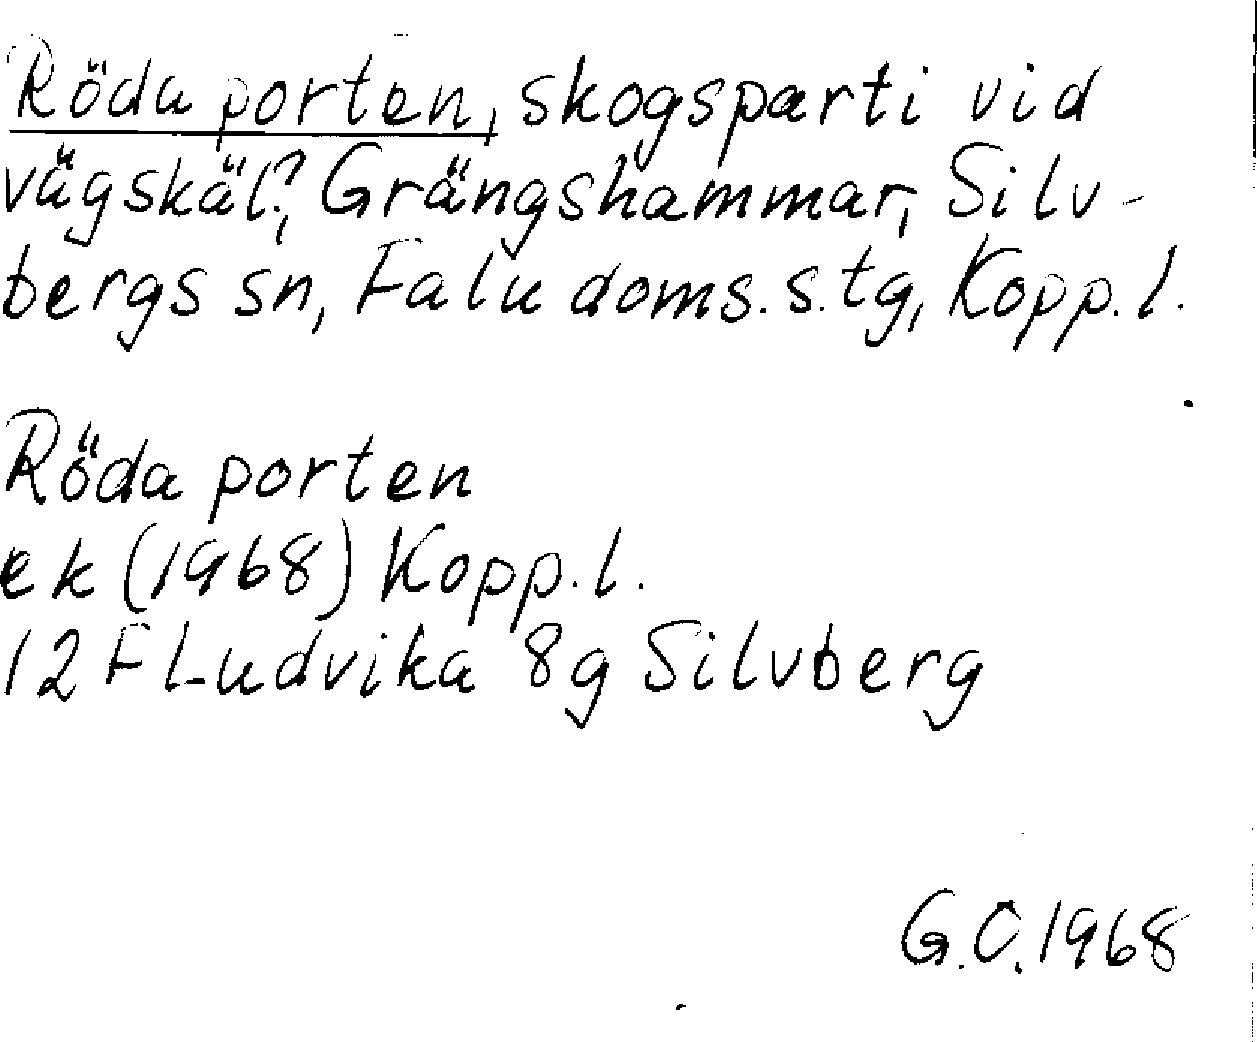 Röda porten, skogsparti vid
vägskäl?, Grängshammar, Silv-
bergs sn, Falu doms.s.tg, Kopp.l.
Röda porten
ek (1968) Kopp.l.
12 F Ludvika 8g Silvberg
G.O.1968